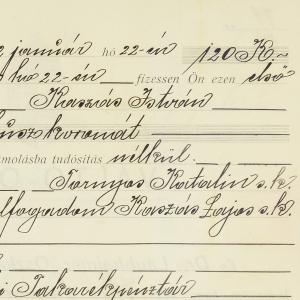 január hó 22-én 120 K.-
hó 22-én fizessen Ön ezen első
Kaszás István
húszkoronát
számolásba tudósítás nélkül.
Tornyos Katalin s.k.
elfogadom Kaszás Lajos s.k.
i Takarékpénztár